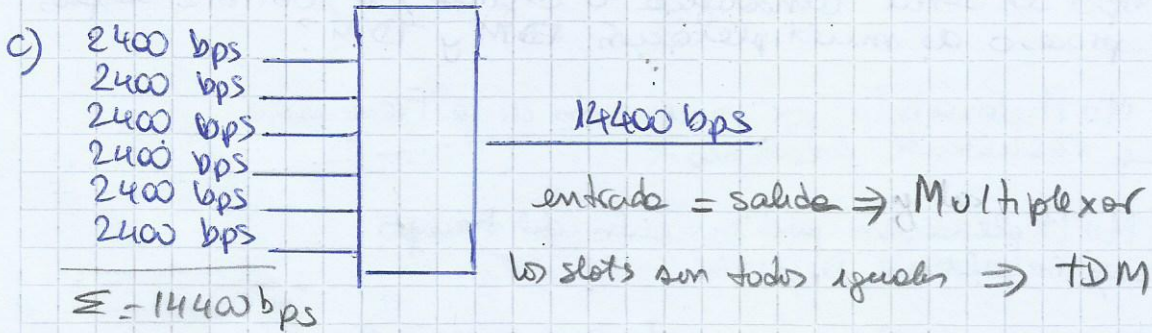 c) 2400 bps
2400 bps
2400 bps
2400 bps
2400 bps
2400 bps
Σ = 14400 bps
14400 bps
entrada = salida ⇒ Multiplexor
los slots son todos iguales ⇒ TDM